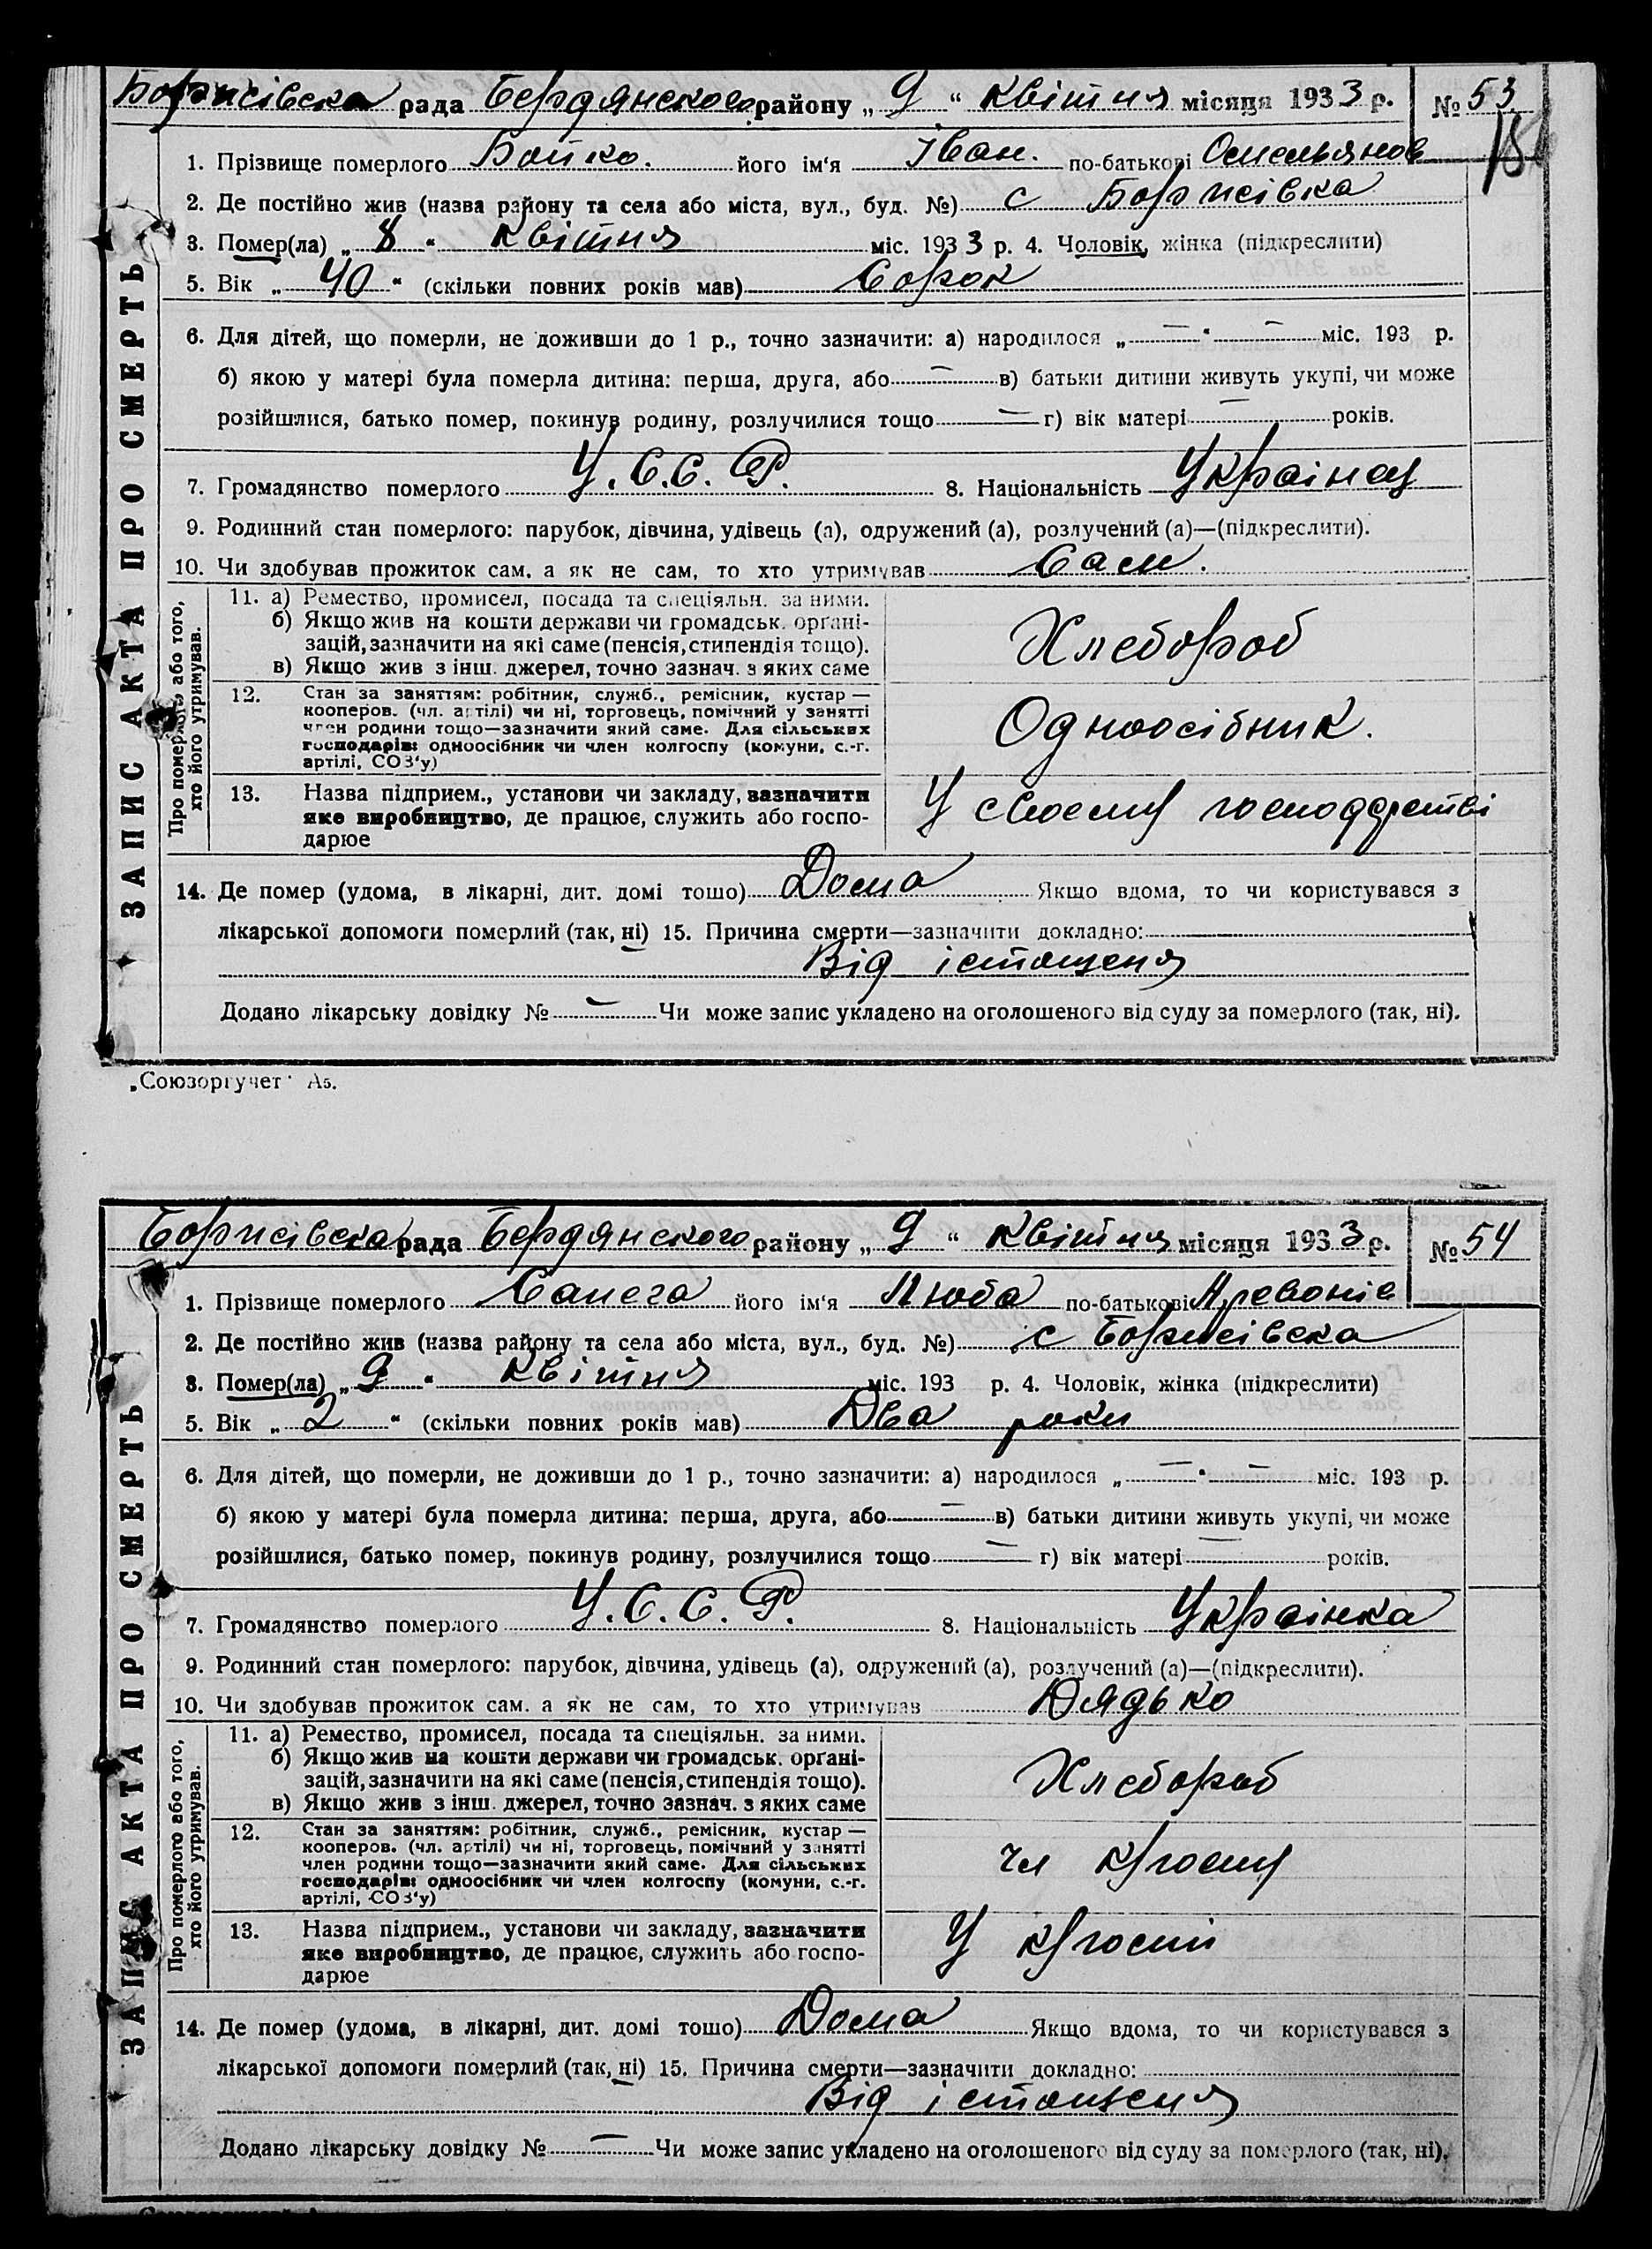 Борисівска рада Бердянского району „ 9 “ Квітня місяця 1933 р. № 53
1. Прізвище померлого Бойко. його ім‘я Іван. по-батькові Омельянов
2. Де постійно жив (назва району та села або міста, вул., буд. №) с Борисівка
3. Помер(ла) „ 8 “ Квітня міс. 193 3 р. 4. Чоловік, жінка (підкреслити)
5. Вік „ 40 “ (скільки повних років мав) Сорок
6. Для дітей, що померли, не доживши до 1 р., точно зазначити: а) народилося „ — “ — міс. 193 р.
б) якою у матері була померла дитина: перша, друга, або — в) батьки дитини живуть укупі, чи може
розійшлися, батько помер, покинув родину, розлучилися тощо — г) вік матері — років.
7. Громадянство померлого У.С.С.Р. 8. Національність Українец
9. Родинний стан померлого: парубок, дівчина, удівець (а), одружений (а), розлучений (а)—(підкреслити).
10. Чи здобував прожиток сам, а як не сам, то хто утримував Сам.
ЗАПИС АКТА ПРО СМЕРТЬ
Про померлого або того,
хто його утримував.
11. а) Ремество, промисел, посада та спеціяльн. за ними.
б) Якщо жив на кошти держави чи громадськ. органі-
зацій, зазначити на які саме (пенсія, стипендія тощо).
в) Якщо жив з інш. джерел, точно зазнач. з яких саме
Хлебороб
12. Стан за заняттям: робітник, служб., ремісник, кустар —
кооперов. (чл. артілі) чи ні, торговець, помічний у занятті
член родини тощо—зазначити який саме. Для сільських
господарів: одноосібник чи член колгоспу (комуни, с.-г.
артілі, СОЗ‘у)
Одноосібник.
13. Назва підприєм., установи чи закладу, зазначити
яке виробництво, де працює, служить або госпо-
дарює
У своему господарстві
14. Де помер (удома, в лікарні, дит. домі тощо) Дома Якщо вдома, то чи користувався з
лікарської допомоги померлий (так, ні) 15. Причина смерти—зазначити докладно:
Від істощеня
Додано лікарську довідку № — Чи може запис укладено на оголошеного від суду за померлого (так, ні).
„Союзоргучет“ А5.
Борисівска рада Бердянского району „ 9 “ Квітня місяця 1933 р. № 54
1. Прізвище померлого Сапега його ім‘я Люба по-батькові
2. Де постійно жив (назва району та села або міста, вул., буд. №) с Борисівска
3. Помер(ла) „ 9 “ Квітня міс. 193 р. 4. Чоловік, жінка (підкреслити)
5. Вік „ 2 “ (скільки повних років мав) Два роки
6. Для дітей, що померли, не доживши до 1 р., точно зазначити: а) народилося „ — “ — міс. 193 р.
б) якою у матері була померла дитина: перша, друга, або — в) батьки дитини живуть укупі, чи може
розійшлися, батько помер, покинув родину, розлучилися тощо — г) вік матері — років.
7. Громадянство померлого У.С.С.Р. 8. Національність Українка
9. Родинний стан померлого: парубок, дівчина, удівець (а), одружений (а), розлучений (а)—(підкреслити).
10. Чи здобував прожиток сам, а як не сам, то хто утримував Дядько
ЗАПИС АКТА ПРО СМЕРТЬ
Про померлого або того,
хто його утримував.
11. а) Ремество, промисел, посада та спеціяльн. за ними.
б) Якщо жив на кошти держави чи громадськ. органі-
зацій, зазначити на які саме (пенсія, стипендія тощо).
в) Якщо жив з інш. джерел, точно зазнач. з яких саме
Хлебороб
12. Стан за заняттям: робітник, служб., ремісник, кустар —
кооперов. (чл. артілі) чи ні, торговець, помічний у занятті
член родини тощо—зазначити який саме. Для сільських
господарів: одноосібник чи член колгоспу (комуни, с.-г.
артілі, СОЗ‘у)
чл
13. Назва підприєм., установи чи закладу, зазначити
яке виробництво, де працює, служить або госпо-
дарює
У
14. Де помер (удома, в лікарні, дит. домі тощо) Дома Якщо вдома, то чи користувався з
лікарської допомоги померлий (так, ні) 15. Причина смерти—зазначити докладно:
Від істощеня
Додано лікарську довідку № — Чи може запис укладено на оголошеного від суду за померлого (так, ні).